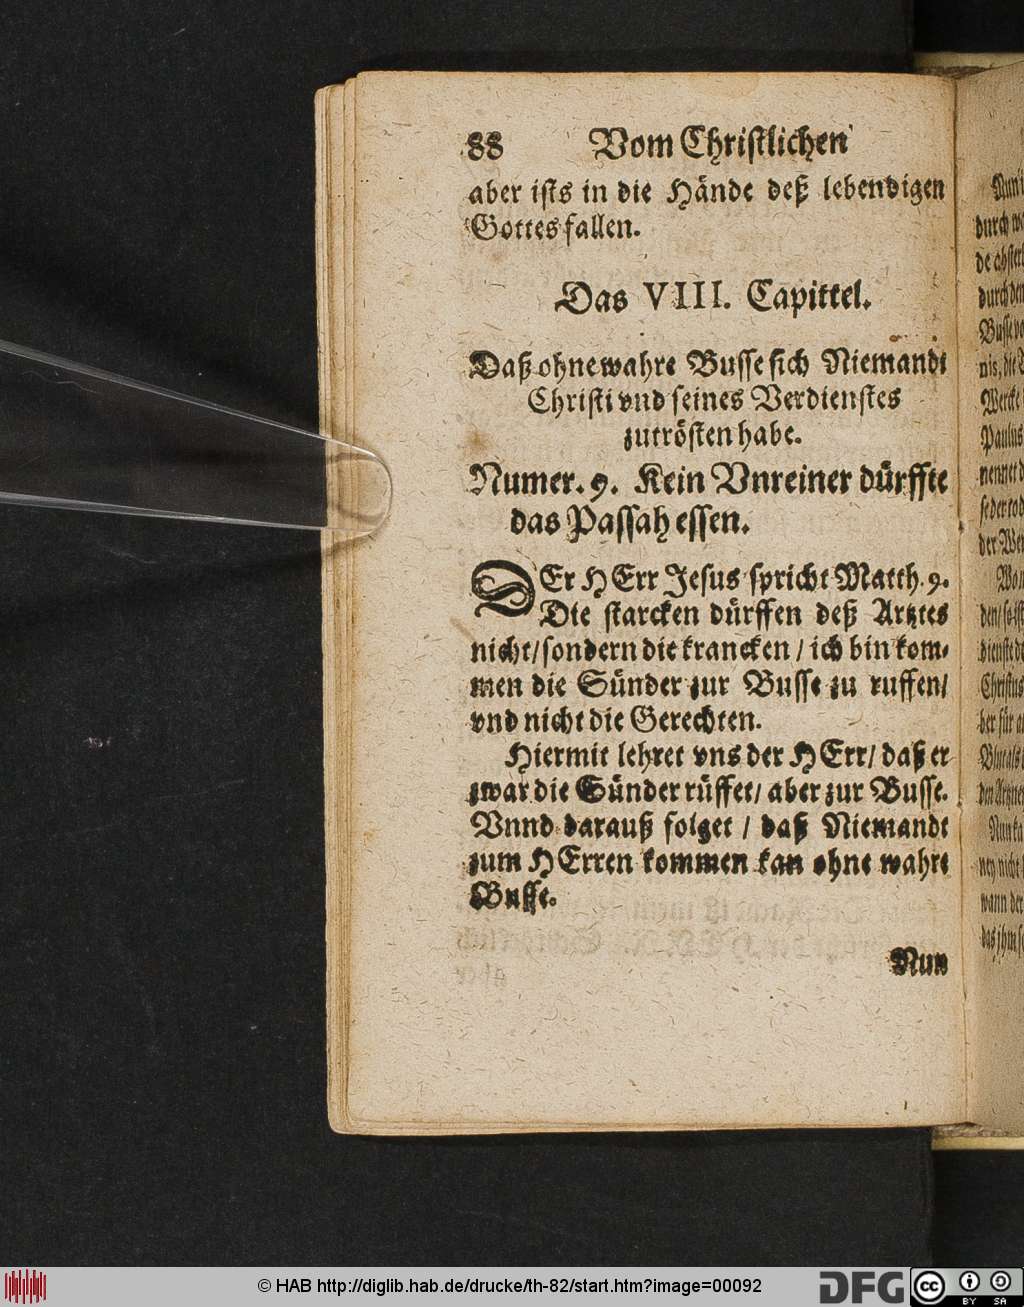 88 Vom Christlichen
aber ists in die Hände deß lebendigen
Gottes fallen.
Das VIII. Capittel.
Daß ohne wahre Busse sich Niemandt
Christi vnd seines Verdienstes
zutrösten habe.
Numer. 9. Kein Vnreiner dürffte
das Passah essen.
DEr HErr Jesus spricht Matth. 9.
Die starcken dürffen deß Artztes
nicht/ sondern die krancken / ich bin kom-
men die Sünder zur Busse zu ruffen/
vnd nicht die Gerechten.
Hiermit lehret vns der HErr/ daß er
zwar die Sünder rüffet/ aber zur Busse.
Vnnd darauß folget / daß Niemandt
zum HErren kommen kan ohne wahre
Busse.
Nun
durch
durch den
nis, die
Wercke
Paulus
nennet
der
Christus
ber für
Nun
ney nicht
wann der
das jhm
© HAB http://diglib.hab.de/drucke/th-82/start.htm?image=00092
DFG
cc BY SA